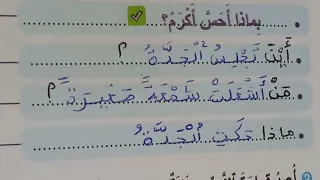 بِمَاذَا أَحَسَّ أَكْرَمُ؟
أَيْنَ تَجْلِسُ الْجَدَّةُ ؟
مَنْ أَشْعَلَتْ شَمْعَةً صَغِيرَةً ؟
مَاذَا حَكَتِ الْجَدَّةُ